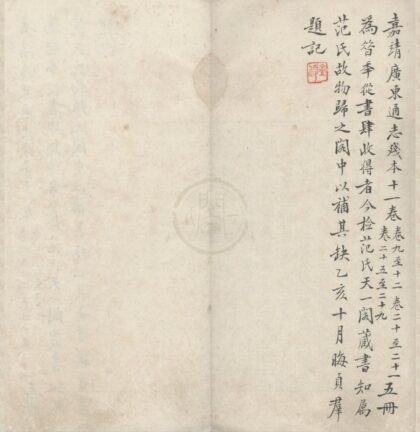 嘉靖廣東通志殘本十一卷卷九至十二卷二十至二十一卷二十五至二十九五冊
為昔年從書肆收得者今檢范氏天一閣藏書知為
范氏故物歸之閣中以補其缺乙亥十月晦貞羣
題記